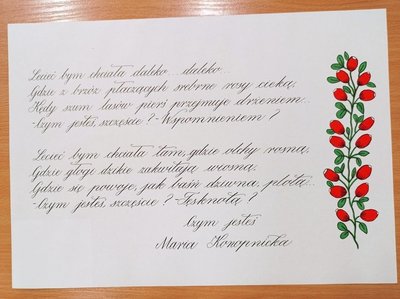 Lecieć bym chciała daleko... daleko...
Gdzie z brzóz płaczących srebrne rosy cieką,
Kędy szum lasów pierś przejmuje drżeniem...
-Czym jesteś, szczęście? -Wspomnieniem?
Lecieć bym chciała tam, gdzie olchy rosną,
Gdzie głogi dzikie zakwitają wiosną,
Gdzie się powoje, jak baśń dziwna, plotą...
-Czym jesteś, szczęście? -Tęsknotą?
Czym jesteś
Maria Konopnicka